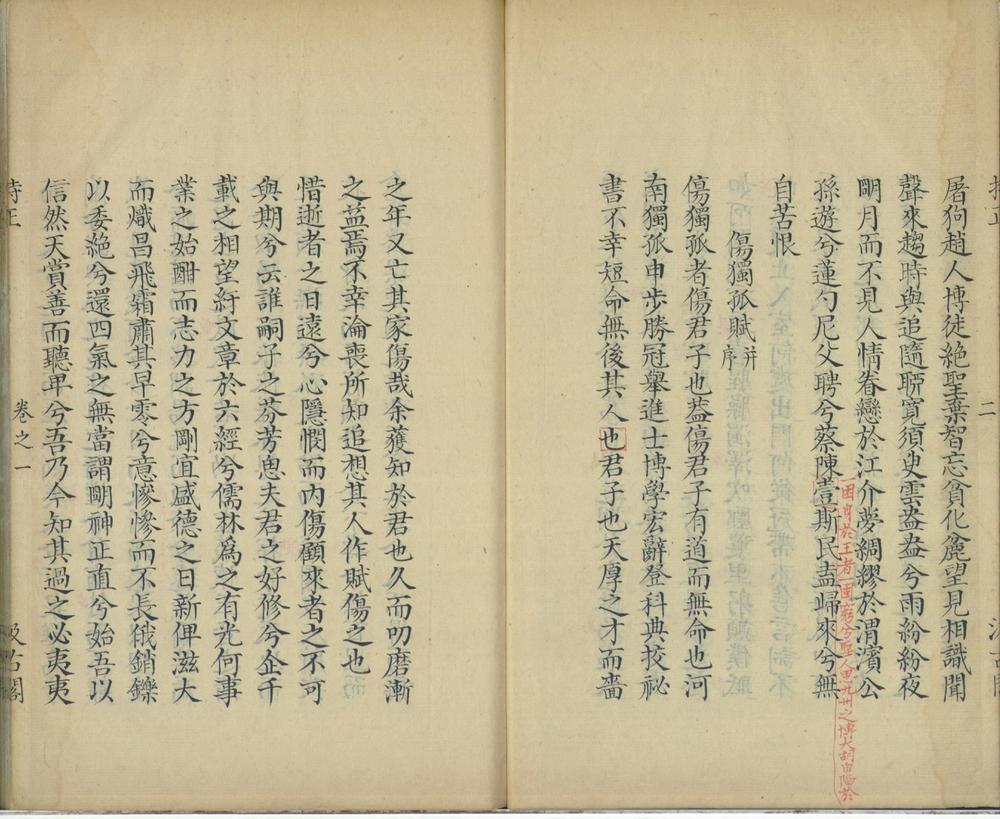 屠狗趙人博徒絕聖棄智忘貧化麄望見相識聞
聲來趨時與追隨聊寬須史雲盎盎兮雨紛紛夜
明月而不見人情眷戀於江介夢綢繆於渭濱公
孫遊兮蓮勺尼父聘兮蔡陳荳斯民盍歸來兮無
一困自於王者一困窮兮聖人思九州之博大胡留隱於
自苦恨
傷獨孤賦并序
傷獨孤者傷君子也葢傷君子有道而無命也河
南獨孤申步勝冠舉進士博學宏辭登科典挍祕
書不幸短命無後其人也君子也天厚之才而嗇
之年又亡其家傷哉余獲知於君也久而叨磨漸
之益焉不幸淪喪所知追想其人作賦傷之也
惜逝者之日遠兮心隱憫而內傷顧來者之不可
與期兮云誰嗣子之芬芳思夫君之好修兮企千
載之相望紆文章於六經兮儒林為之有光何事
業之始酣而志力之方剛宜盛德之日新俾滋大
而熾昌飛霜肅其早零兮意慘慘而不長俄銷鑠
以委絕兮還四氣之無當謂明神正直兮始吾以
信然天賞善而聽卑兮吾乃今知其過之必夷夷
卷之一